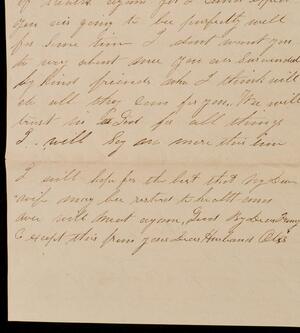 of
again for I
you are going to be perfectly well
for some time I dont want you
to worry about me you are surrounded
by kind friends who I think will
do all they can for you. We will
trust in God for all things
I.. will Say no more this time
I will hope for the best that My Dear
wife may be restored to health and
we will meet again,
Except this from your Dear Husband